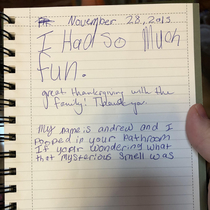 November 28, 2013
I Had so Much
fun.
great thanksgiving with the
family! Thank you
My name is andrew and I
pooped in your bathroom
If your wondering what
that mysterious smell was